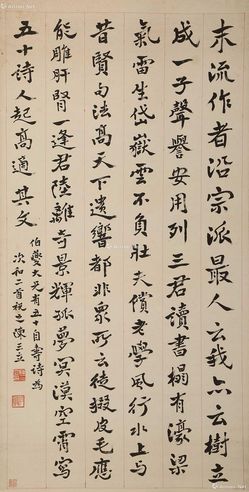 末流作者沿宗派最人云我亦云樹立
成一子聲譽安用列三君讀書榻有濠梁
氣雷生岱嶽雲不負壯夫償老學風行水上与
昔賢句法高天下遺響都非眾所云徒掇皮毛應
能雕肝腎一逢君陸離奇景輝孤夢冥漠空霄寫
五十詩人起高適其文
伯夔大兄有五十自壽詩為
次和二首祝之陳三立